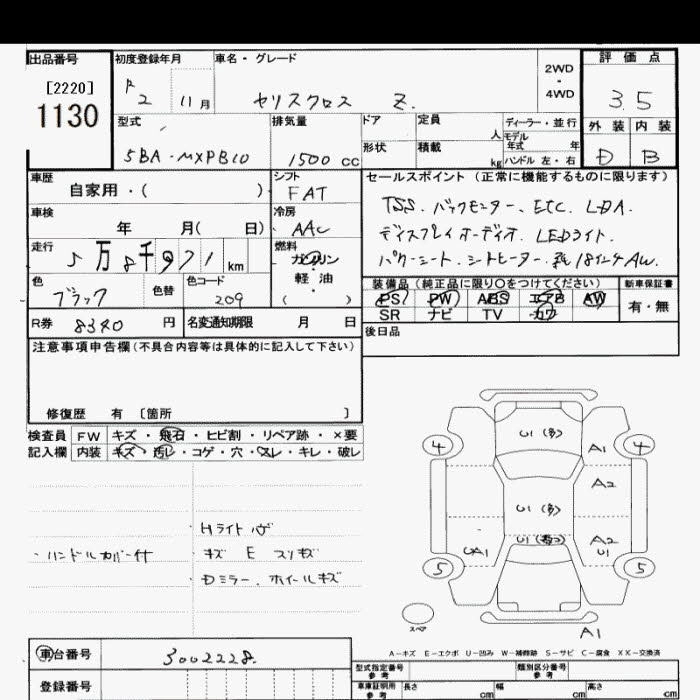 出品番号
[2220]
1130
初度登録年月
R 2 11月
車名・グレード
ヤリスクロス Z.
2WD
・
4WD
評価点
3.5
外装 内装
D B
型式
5BA・MXPB10
排気量
1500 cc
ドア
形状
定員
人
積載
kg
ディーラー・並行
モデル
年式 年
ハンドル 左・右
車歴
自家用・( )
シフト
FAT
車検
年 月( 日)
冷房
AAC
走行
5万8千971 km
燃料
ガソリン
軽・油
( )
色
ブラック
色替
色コード
209
R券 8340 円
名変通知期限 月 日
セールスポイント (正常に機能するものに限ります)
TSS. バックモニター、ETC. LDA.
ディスプレイオーディオ. LEDライト.
パワーシート. シートヒーター. 純18インチAW.
装備品(純正品に限り○をつけてください)
PS PW ABS エアB AW
SR ナビ TV カワ
新車保証書
有・無
後日品
注意事項申告欄(不具合内容等は具体的に記入して下さい)
修復歴 有 〔箇所 〕
検査員 FW キズ・飛石・ヒビ割・リペア跡・×要
記入欄 内装 キズ・汚レ・コゲ・穴・スレ・キレ・破レ
・ハンドルカバー付
Hライト
キズ E スリキズ
Dミラー. ホイールキズ
4
U1(多)
A1
4
A2
U1(多)
U1
UA1
A2
U1
5
5
スペア
A1
A－キズ E－エクボ U－凹み W－補修跡 S－サビ C－腐食 XX－交換済
車台番号 3002228.
登録番号
型式指定番号
参考
類別区分番号
参考
車庫証明用
参考
長さ cm
幅 cm
高さ cm